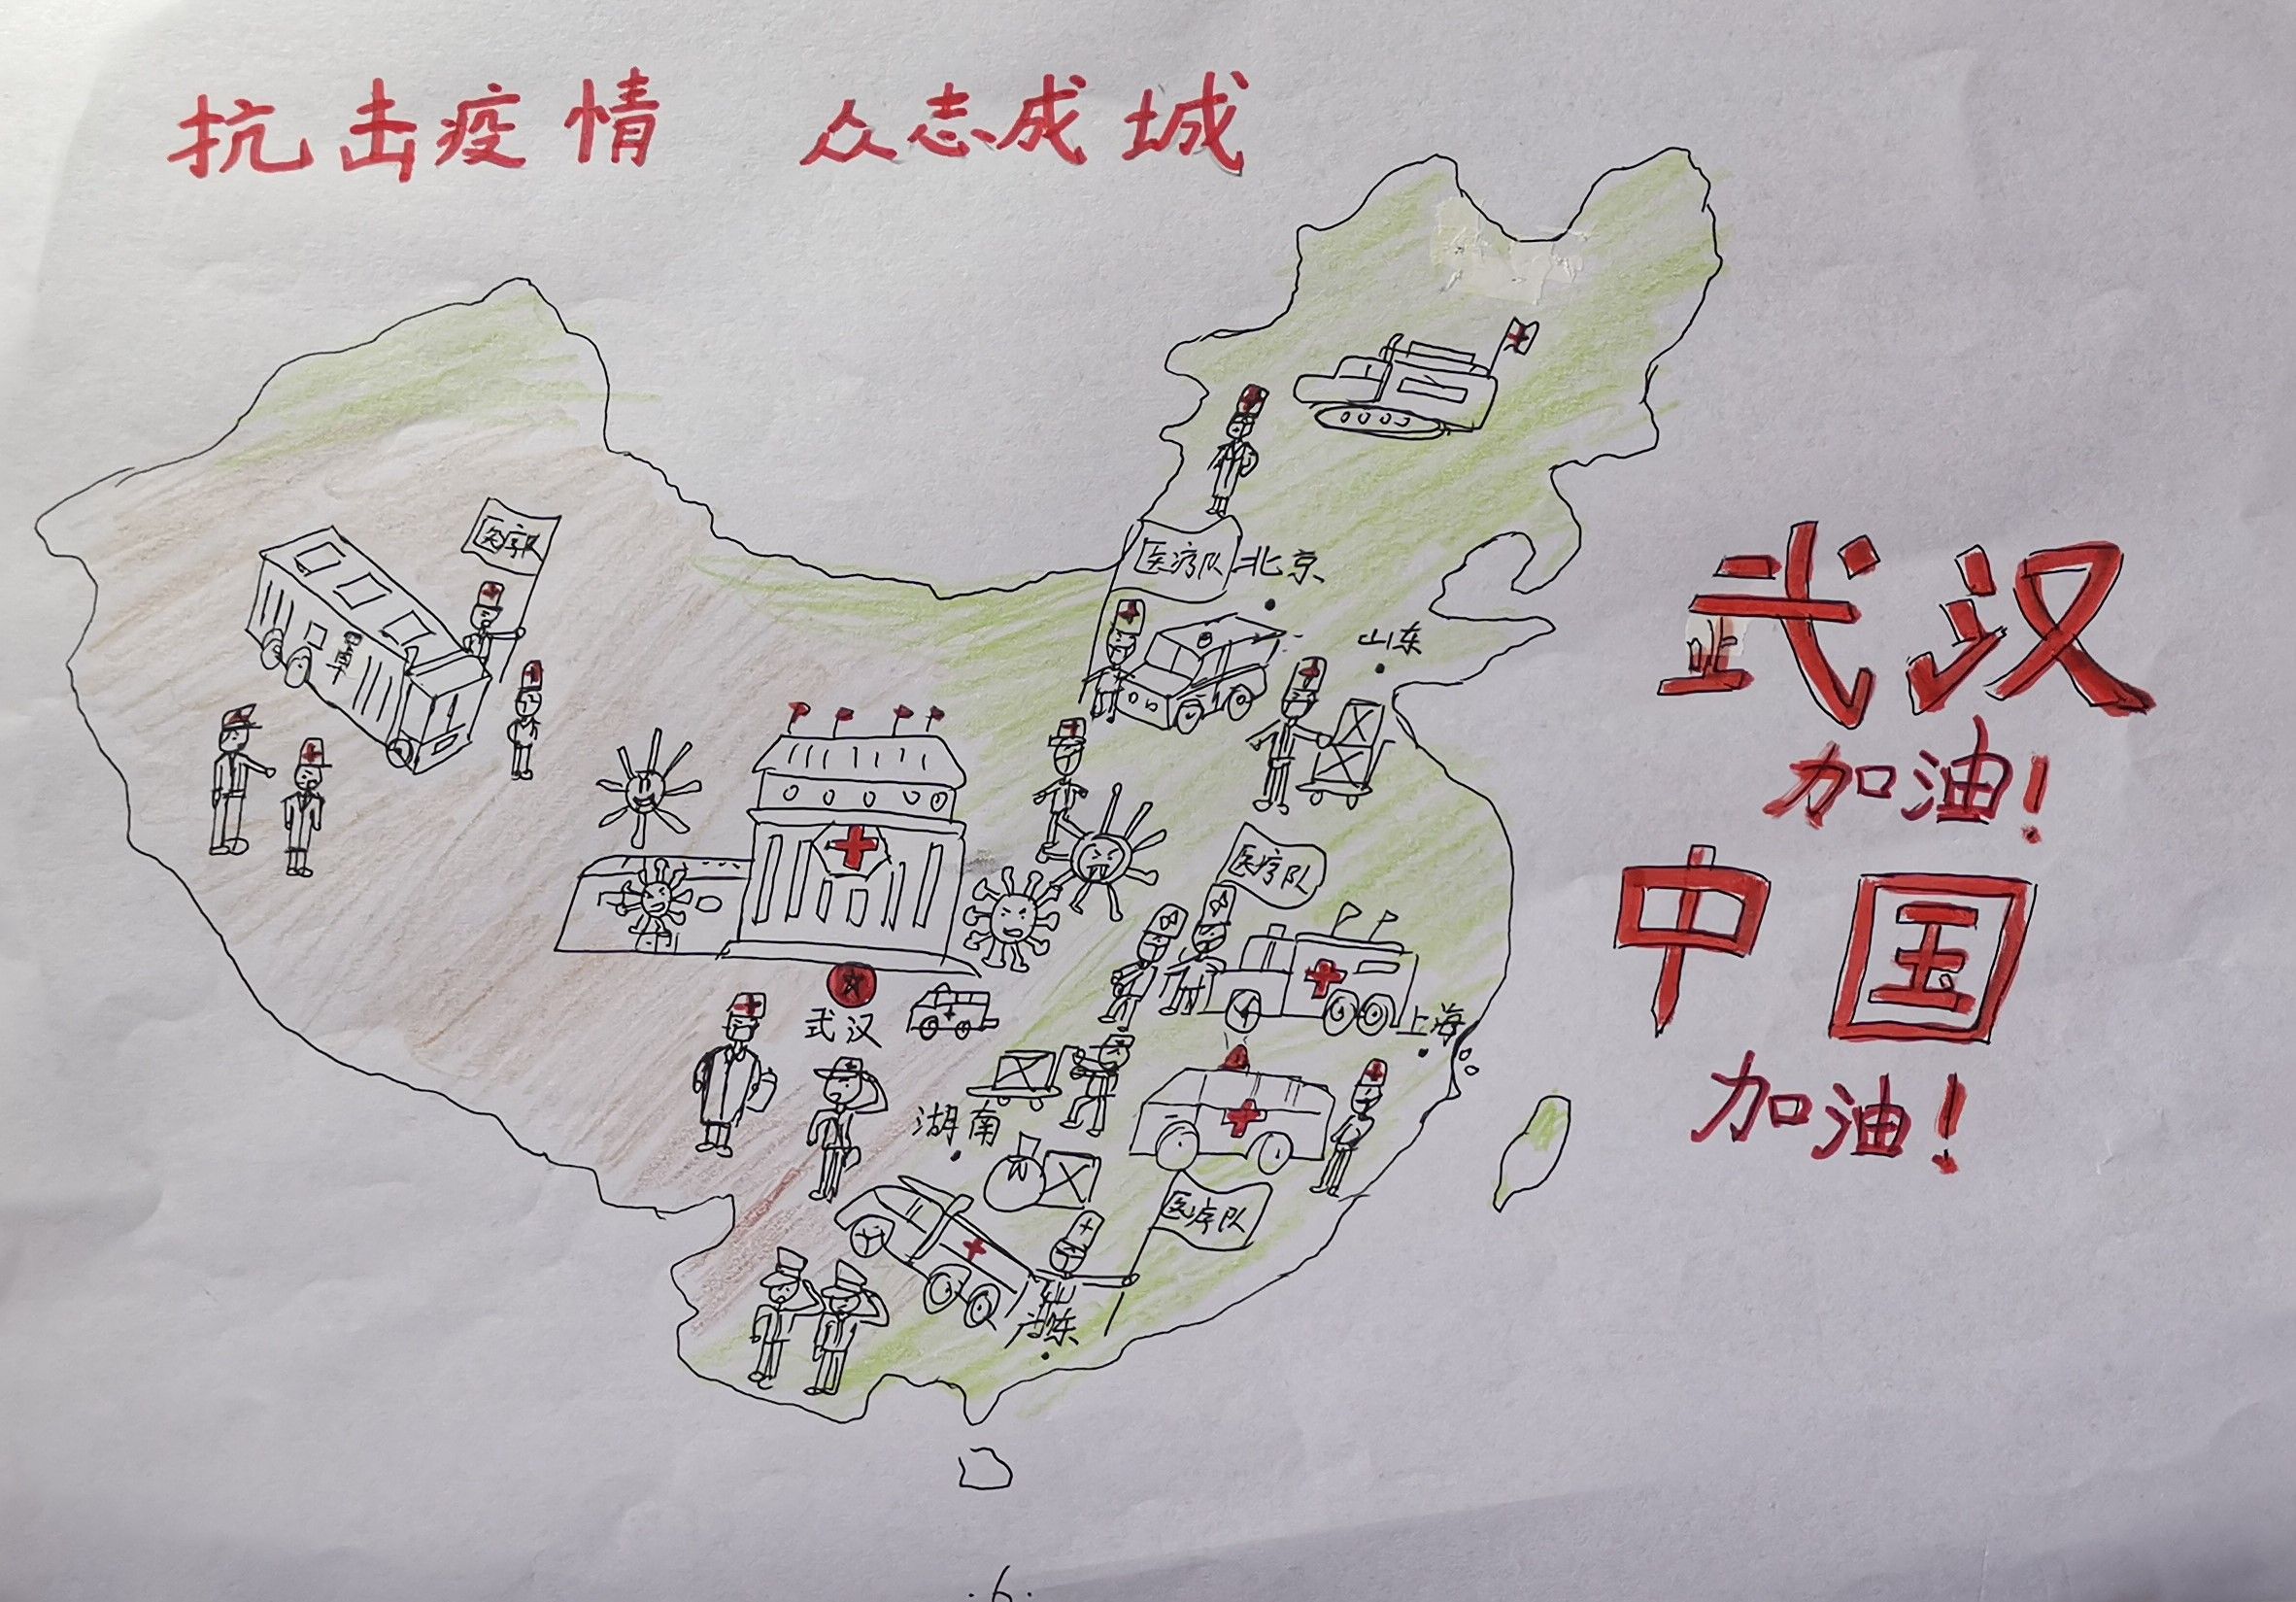 抗击疫情 众志成城
医疗队
医疗队
北京
山东
武汉
加油!
医疗队
中国
武汉
上海
加油!
湖南
医疗队
广东
6